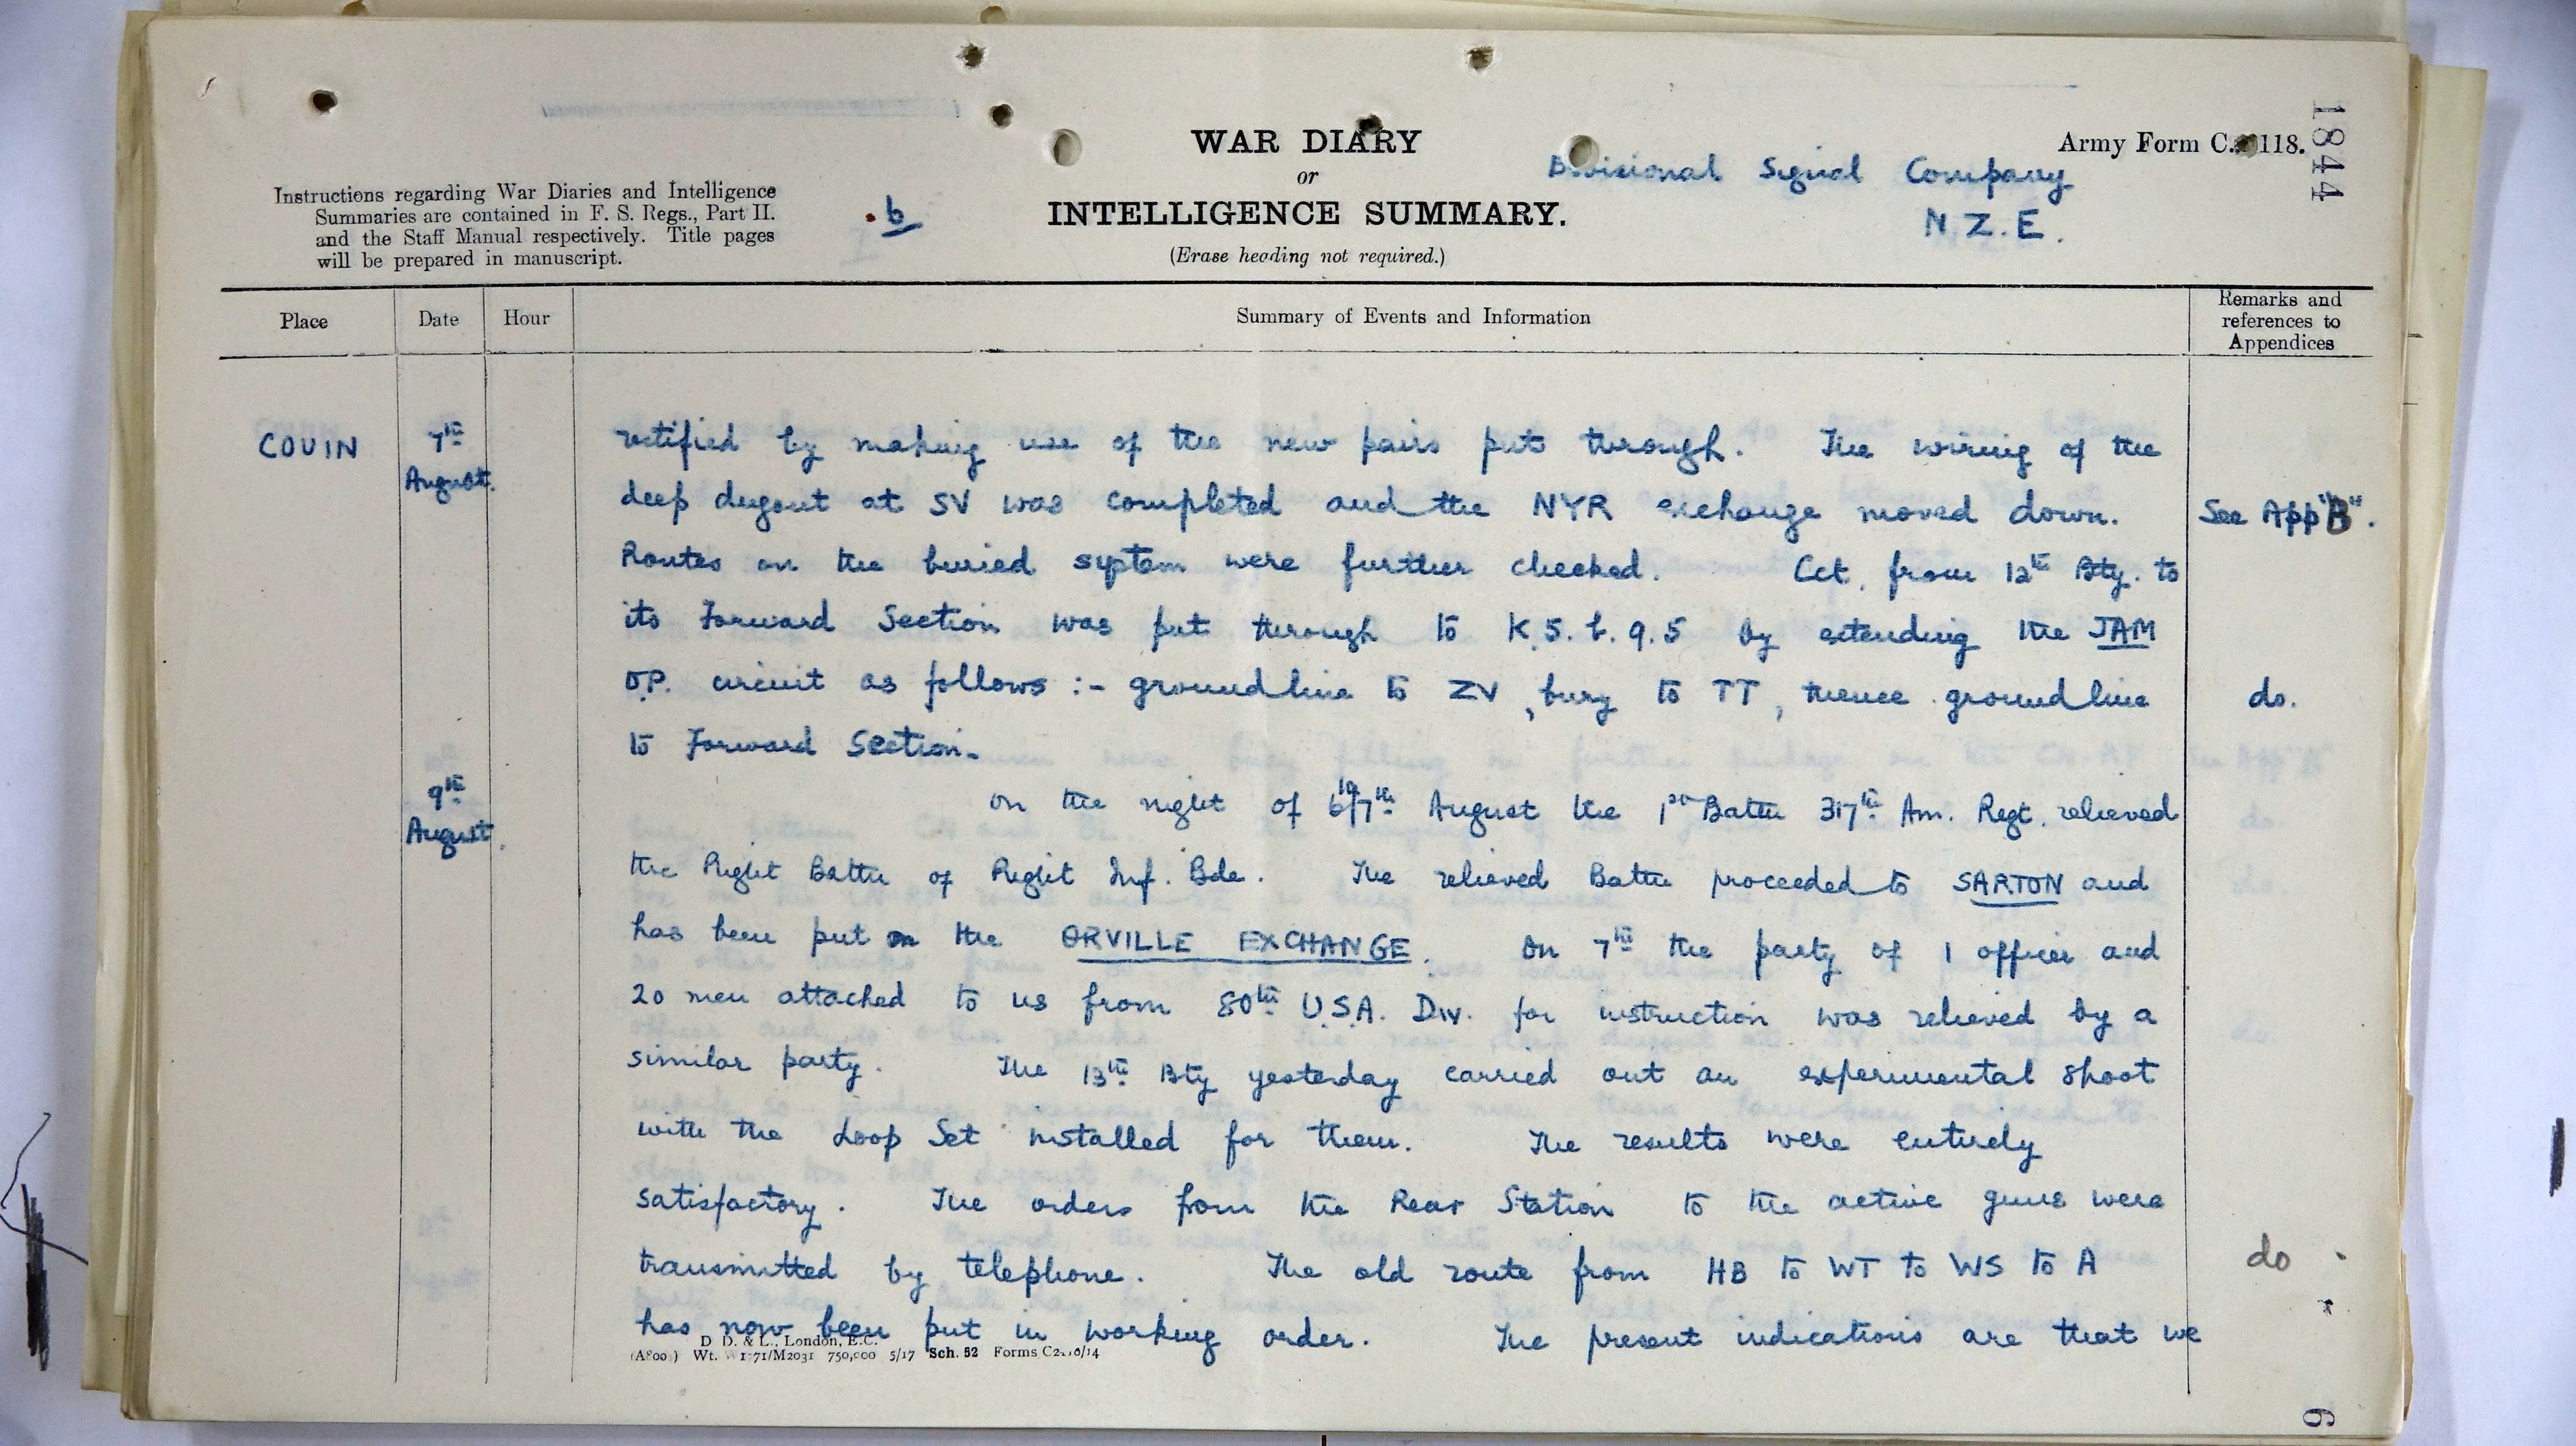 1844
WAR DIARY
or
INTELLIGENCE SUMMARY.
(Erase heading not required.)
Army Form C. 118.
Divisional Signal Company
N.Z.E.
Instructions regarding War Diaries and Intelligence
Summaries are contained in F. S. Regs., Part II.
and the Staff Manual respectively. Title pages
will be prepared in manuscript.
b
Place Date Hour Summary of Events and Information Remarks and references to Appendices
COUIN 7th August. rectified by making use of the new pairs put through. The wiring of the
deep dugout at SV was completed and the NYR exchange moved down. See App "B".
Routes on the buried system were further checked. Cct. from 12th Bty. to
its Forward Section was put through to K.5.b.9.5 by extending the JAM
O.P. circuit as follows :- groundline to ZV, bury to TT, thence groundline do.
to Forward Section.
9th August. On the night of 6th/7th August the 1st Battn 317th Am. Regt. relieved
the Right Battn of Right Inf. Bde. The relieved Battn proceeded to SARTON and
has been put on the ORVILLE EXCHANGE. On 7th the party of 1 officer and
20 men attached to us from 80th U.S.A. Div. for instruction was relieved by a
similar party. The 13th Bty yesterday carried out an experimental shoot
with the Loop Set installed for them. The results were entirely
satisfactory. The orders from the Rear Station to the active guns were
transmitted by telephone. The old route from HB to WT to WS to A do.
has now been put in working order. The present indications are that we
D. D. & L., London, E.C.
Wt. 750,000 5/17 Sch. 52 Forms
6